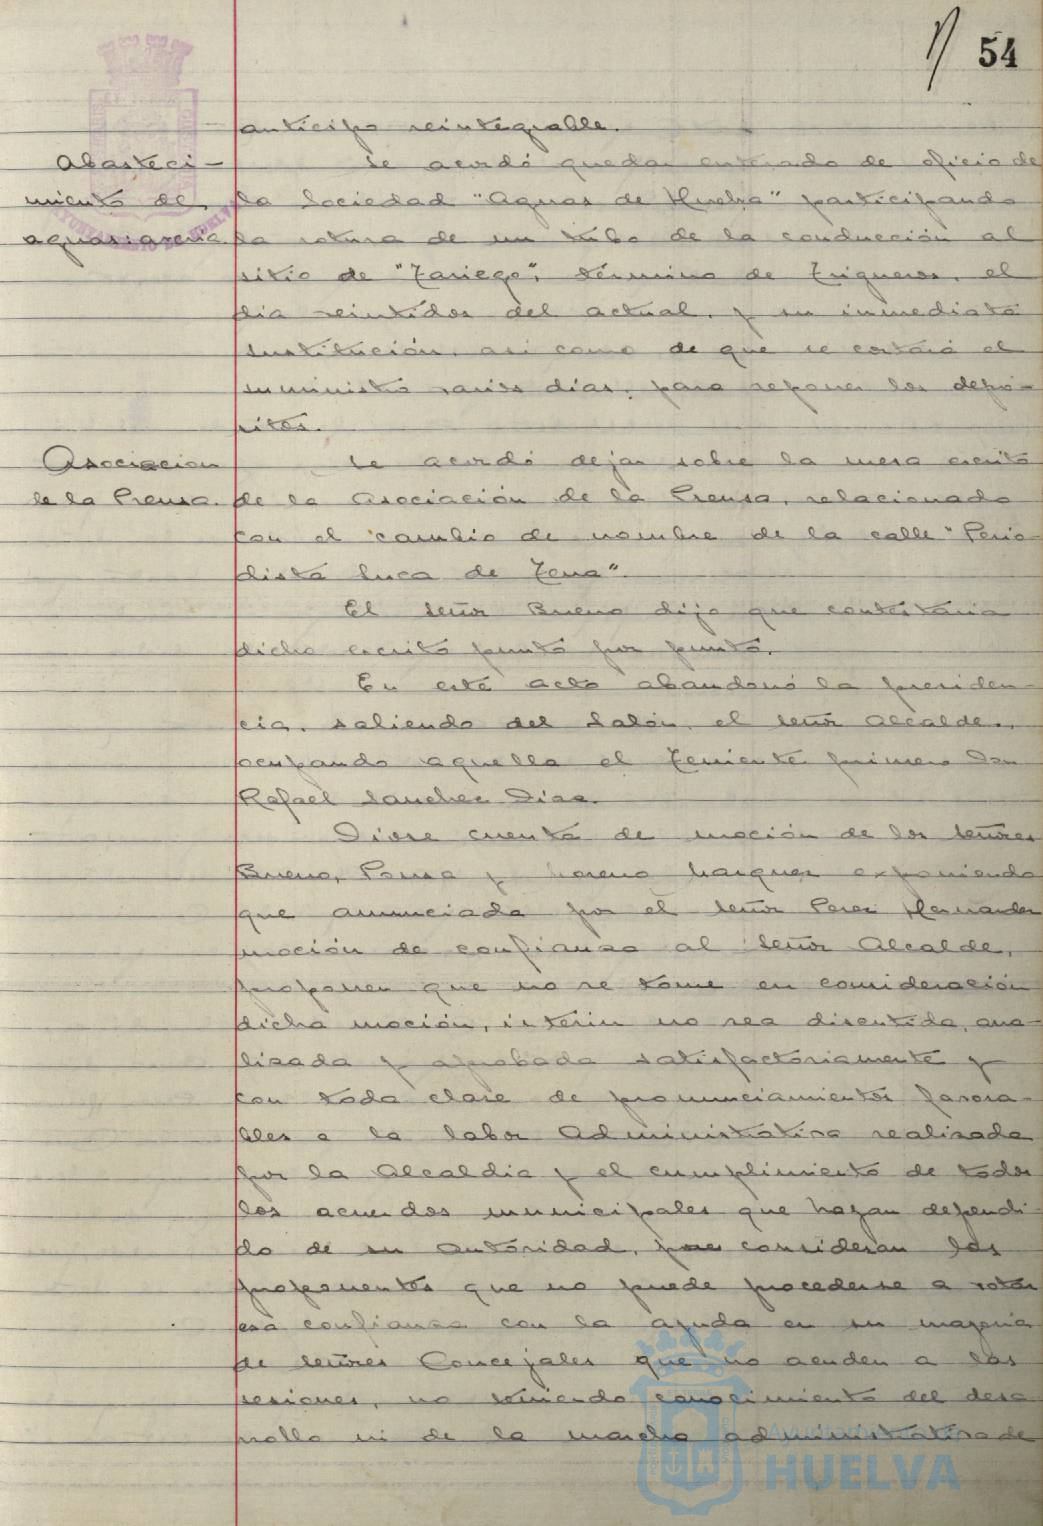 54
anticipo reintegrable.
Abasteci-
miento de
aguas: averia
Se acordó quedar enterado de oficio de
la Sociedad "Aguas de Huelva" participando
la rotura de un tubo de la conducción al
sitio de "Zariego", término de Trigueros, el
dia veintidos del actual, y su inmediata
sustitución, asi como de que se cortará el
suministro varios dias, para reponer los depó-
sitos.
Asociacion
de la Prensa.
Se acordó dejar sobre la mesa escrito
de la Asociación de la Prensa, relacionado
con el cambio de nombre de la calle "Perio-
dista Luca de Tena".
El señor Bueno dijo que contestaria
dicho escrito punto por punto.
En este acto abandonó la presiden-
cia, saliendo del Salón, el señor Alcalde,
ocupando aquella el Teniente primero Don
Rafael Sanchez Diaz.
Diose cuenta de moción de los señores
Bueno, Ponsa y Moreno Marquez exponiendo
que anunciada por el señor Perez Hernandez
moción de confianza al señor Alcalde,
proponen que no se tome en consideración
dicha moción, interin no sea discutida, ana-
lizada y aprobada satisfactoriamente y
con toda clase de pronunciamientos favora-
bles a la labor Administrativa realizada
por la Alcaldia y el cumplimiento de todos
los acuerdos municipales que hayan dependi-
do de su autoridad, pues consideran los
proponentes que no puede procederse a votar
esa confianza con la ayuda en su mayoria
de señores Concejales que no acuden a las
sesiones, no teniendo conocimiento del desa-
rrollo ni de la marcha administrativa de
Ayuntamiento de
HUELVA